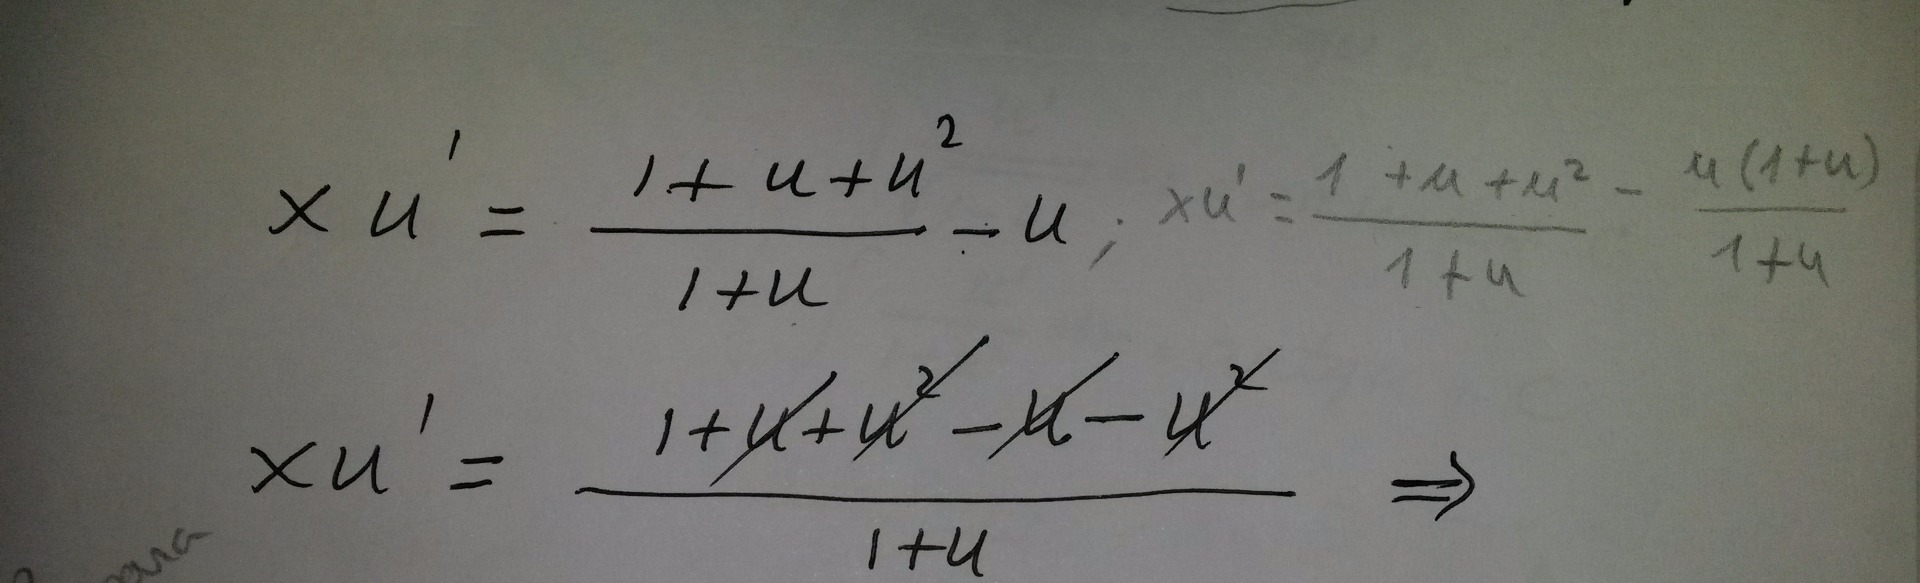 x u' = \frac{1+u+u^2}{1+u} - u ; xu' = \frac{1+u+u^2}{1+u} - \frac{u(1+u)}{1+u}
xu' = \frac{1+u+u^2-u-u^2}{1+u} ⇒